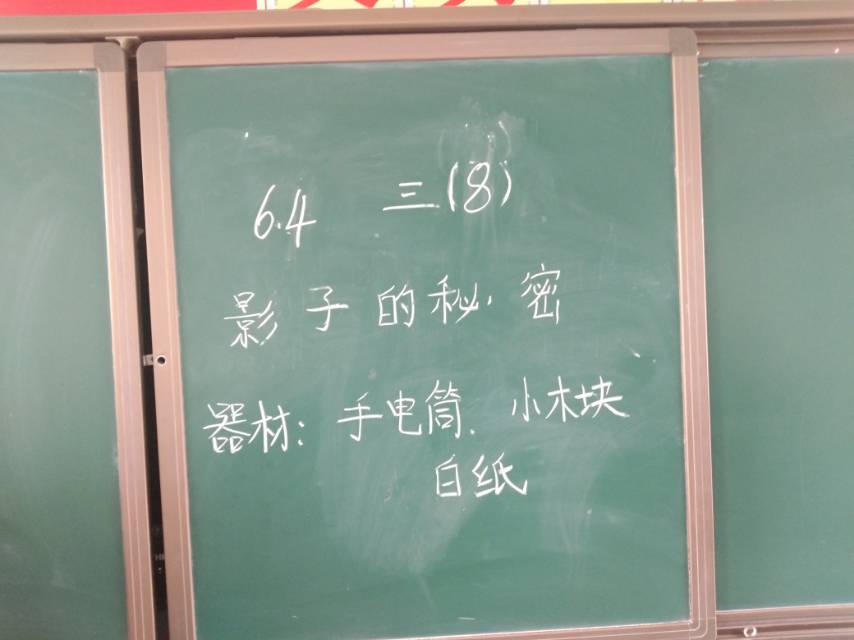 6.4 三(8)
影子的秘密
器材：手电筒、小木块
白纸